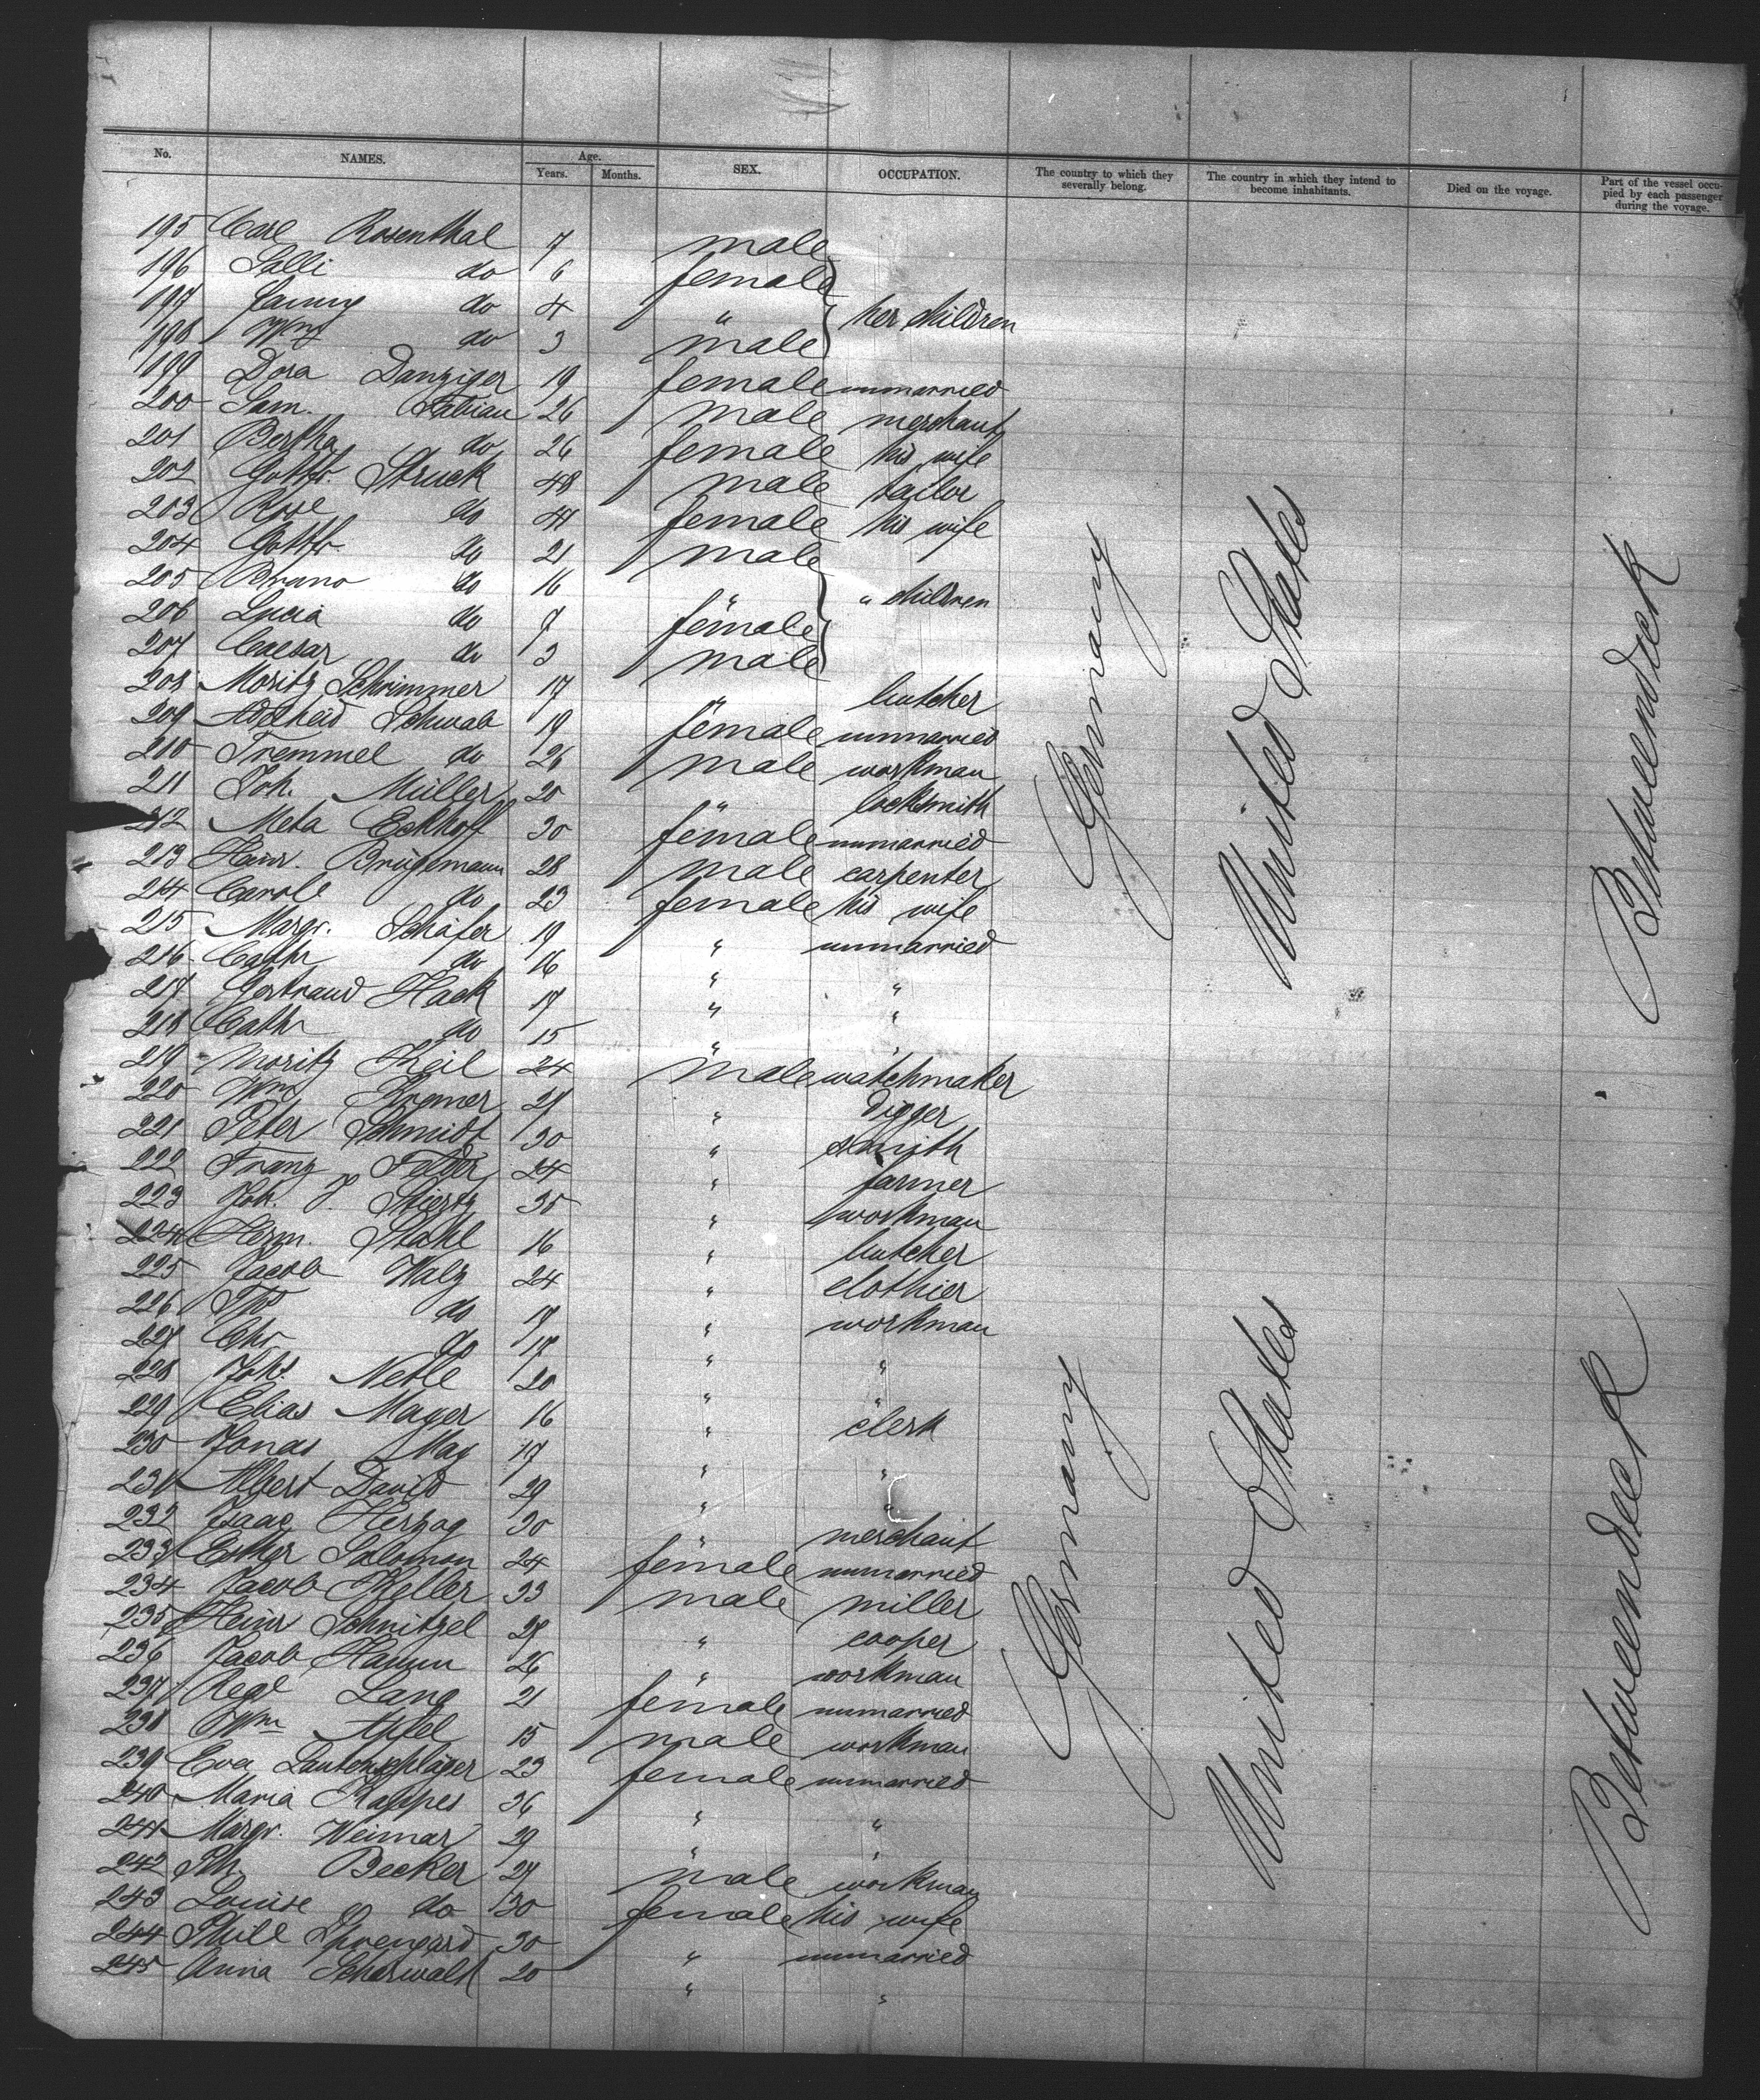 No. NAMES. Age. Years. Months. SEX. OCCUPATION. The country to which they severally belong. The country in which they intend to become inhabitants. Died on the voyage. Part of the vessel occupied by each passenger during the voyage.
195 Carl Rosenthal 7 male
196 Salli do 6 female
197 Fanny do 4 " her children
198 Wm do 3 male
199 Dora Danziger 19 female unmarried
200 Sam. Fabian 26 male merchant
201 Bertha do 26 female his wife
202 Gottfr. Struck 48 male tailor
203 Rose do 41 female his wife
204 Gottfr do 21 male
205 Bruno do 16 " " children
206 Lucia do 9 female
207 Caesar do 3 male
208 Moritz Schrimmer 17 " butcher
209 Adelheid Schwab 19 female unmarried
210 Tremmel do 26 male workman
211 Joh. Müller 20 " locksmith
212 Meta Eckhoff 30 female unmarried
213 Heinr. Brügemann 28 male carpenter
214 Carole do 23 female his wife
215 Margr. Schäfer 19 " unmarried
216 Cathr do 16 " "
217 Gertraud Hack 17 " "
218 Cathr do 15 " "
219 Moritz Keil 24 male watchmaker
220 Wm Kramer 27 " digger
221 Peter Schmidt 30 " smith
222 Franz 24 " farmer
223 Joh. J. 35 " workman
224 Herm. Stahl 16 " butcher
225 Jacob Walz 24 " clothier
226 do 17 " workman
227 Chr do 17 " "
228 Joh. 20 "
229 Elias Mayer 16 " clerk
230 Jonas May 17 " "
231 Albert David 29 " "
232 Isaac Herzog 30 " merchant
233 Esther Solomon 24 female unmarried
234 Jacob Keller 33 male miller
235 Heinr Schnitzel 27 " cooper
236 Jacob Hamm 26 " workman
237 Regl Lang 21 female unmarried
238 Wm Apfel 15 male workman
239 Eva Lautenschläger 23 female unmarried
240 Maria Kappes 36 " "
241 Margr. Weimar 29 " "
242 Ph. Becker 27 male workman
243 Louise do 30 female his wife
244 Phill 30 " unmarried
245 Anna 20 " "
Germany
United States
Betweendeck
Germany
United States
Betweendeck